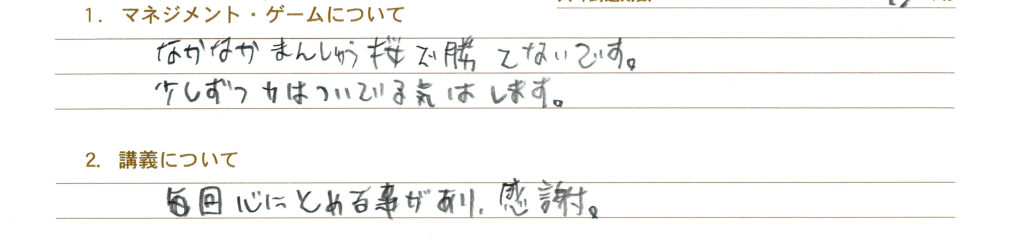 1. マネジメント・ゲームについて
なかなかまんしゅう桜で勝てないです。
少しずつ力はついている気はします。
2. 講義について
毎回心にとめる事があり、感謝。